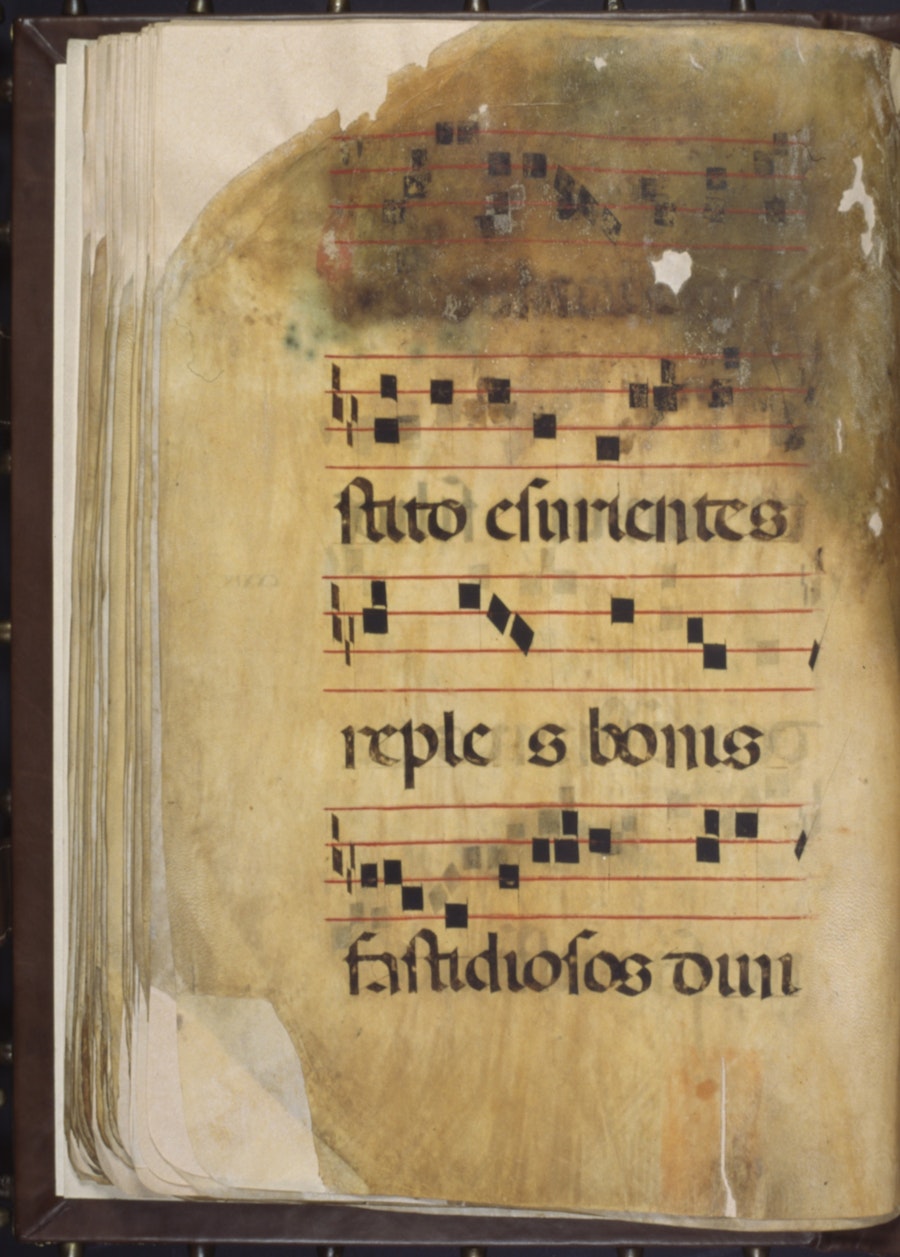 stito esurientes
reple s bonis
fastidiosos dim